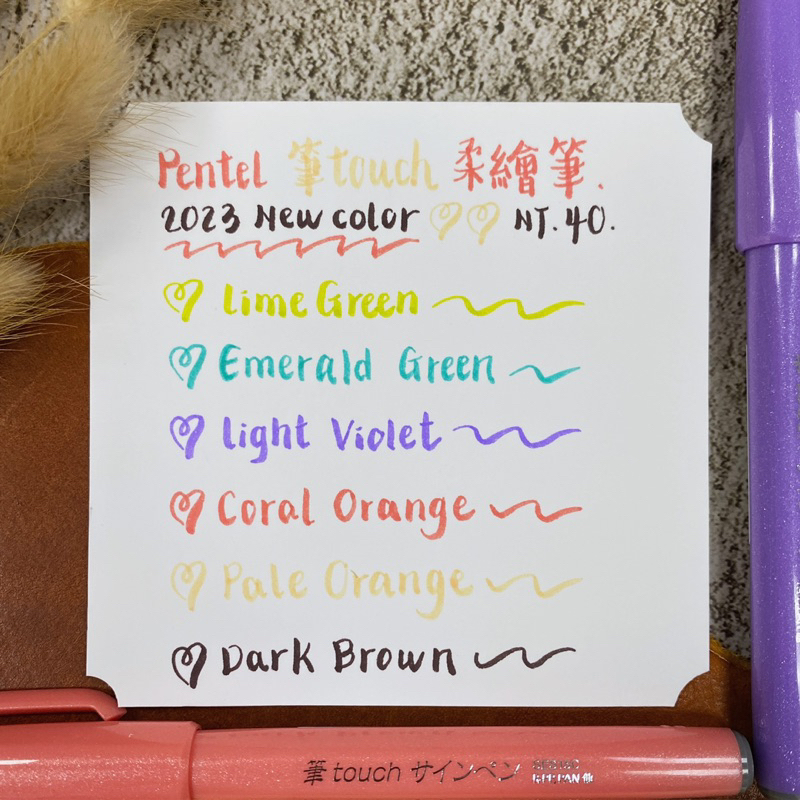 Pentel 筆touch 柔繪筆.
2023 New color NT.40.
Lime Green
Emerald Green
Light Violet
Coral Orange
Pale Orange
Dark Brown
筆touch サインペン